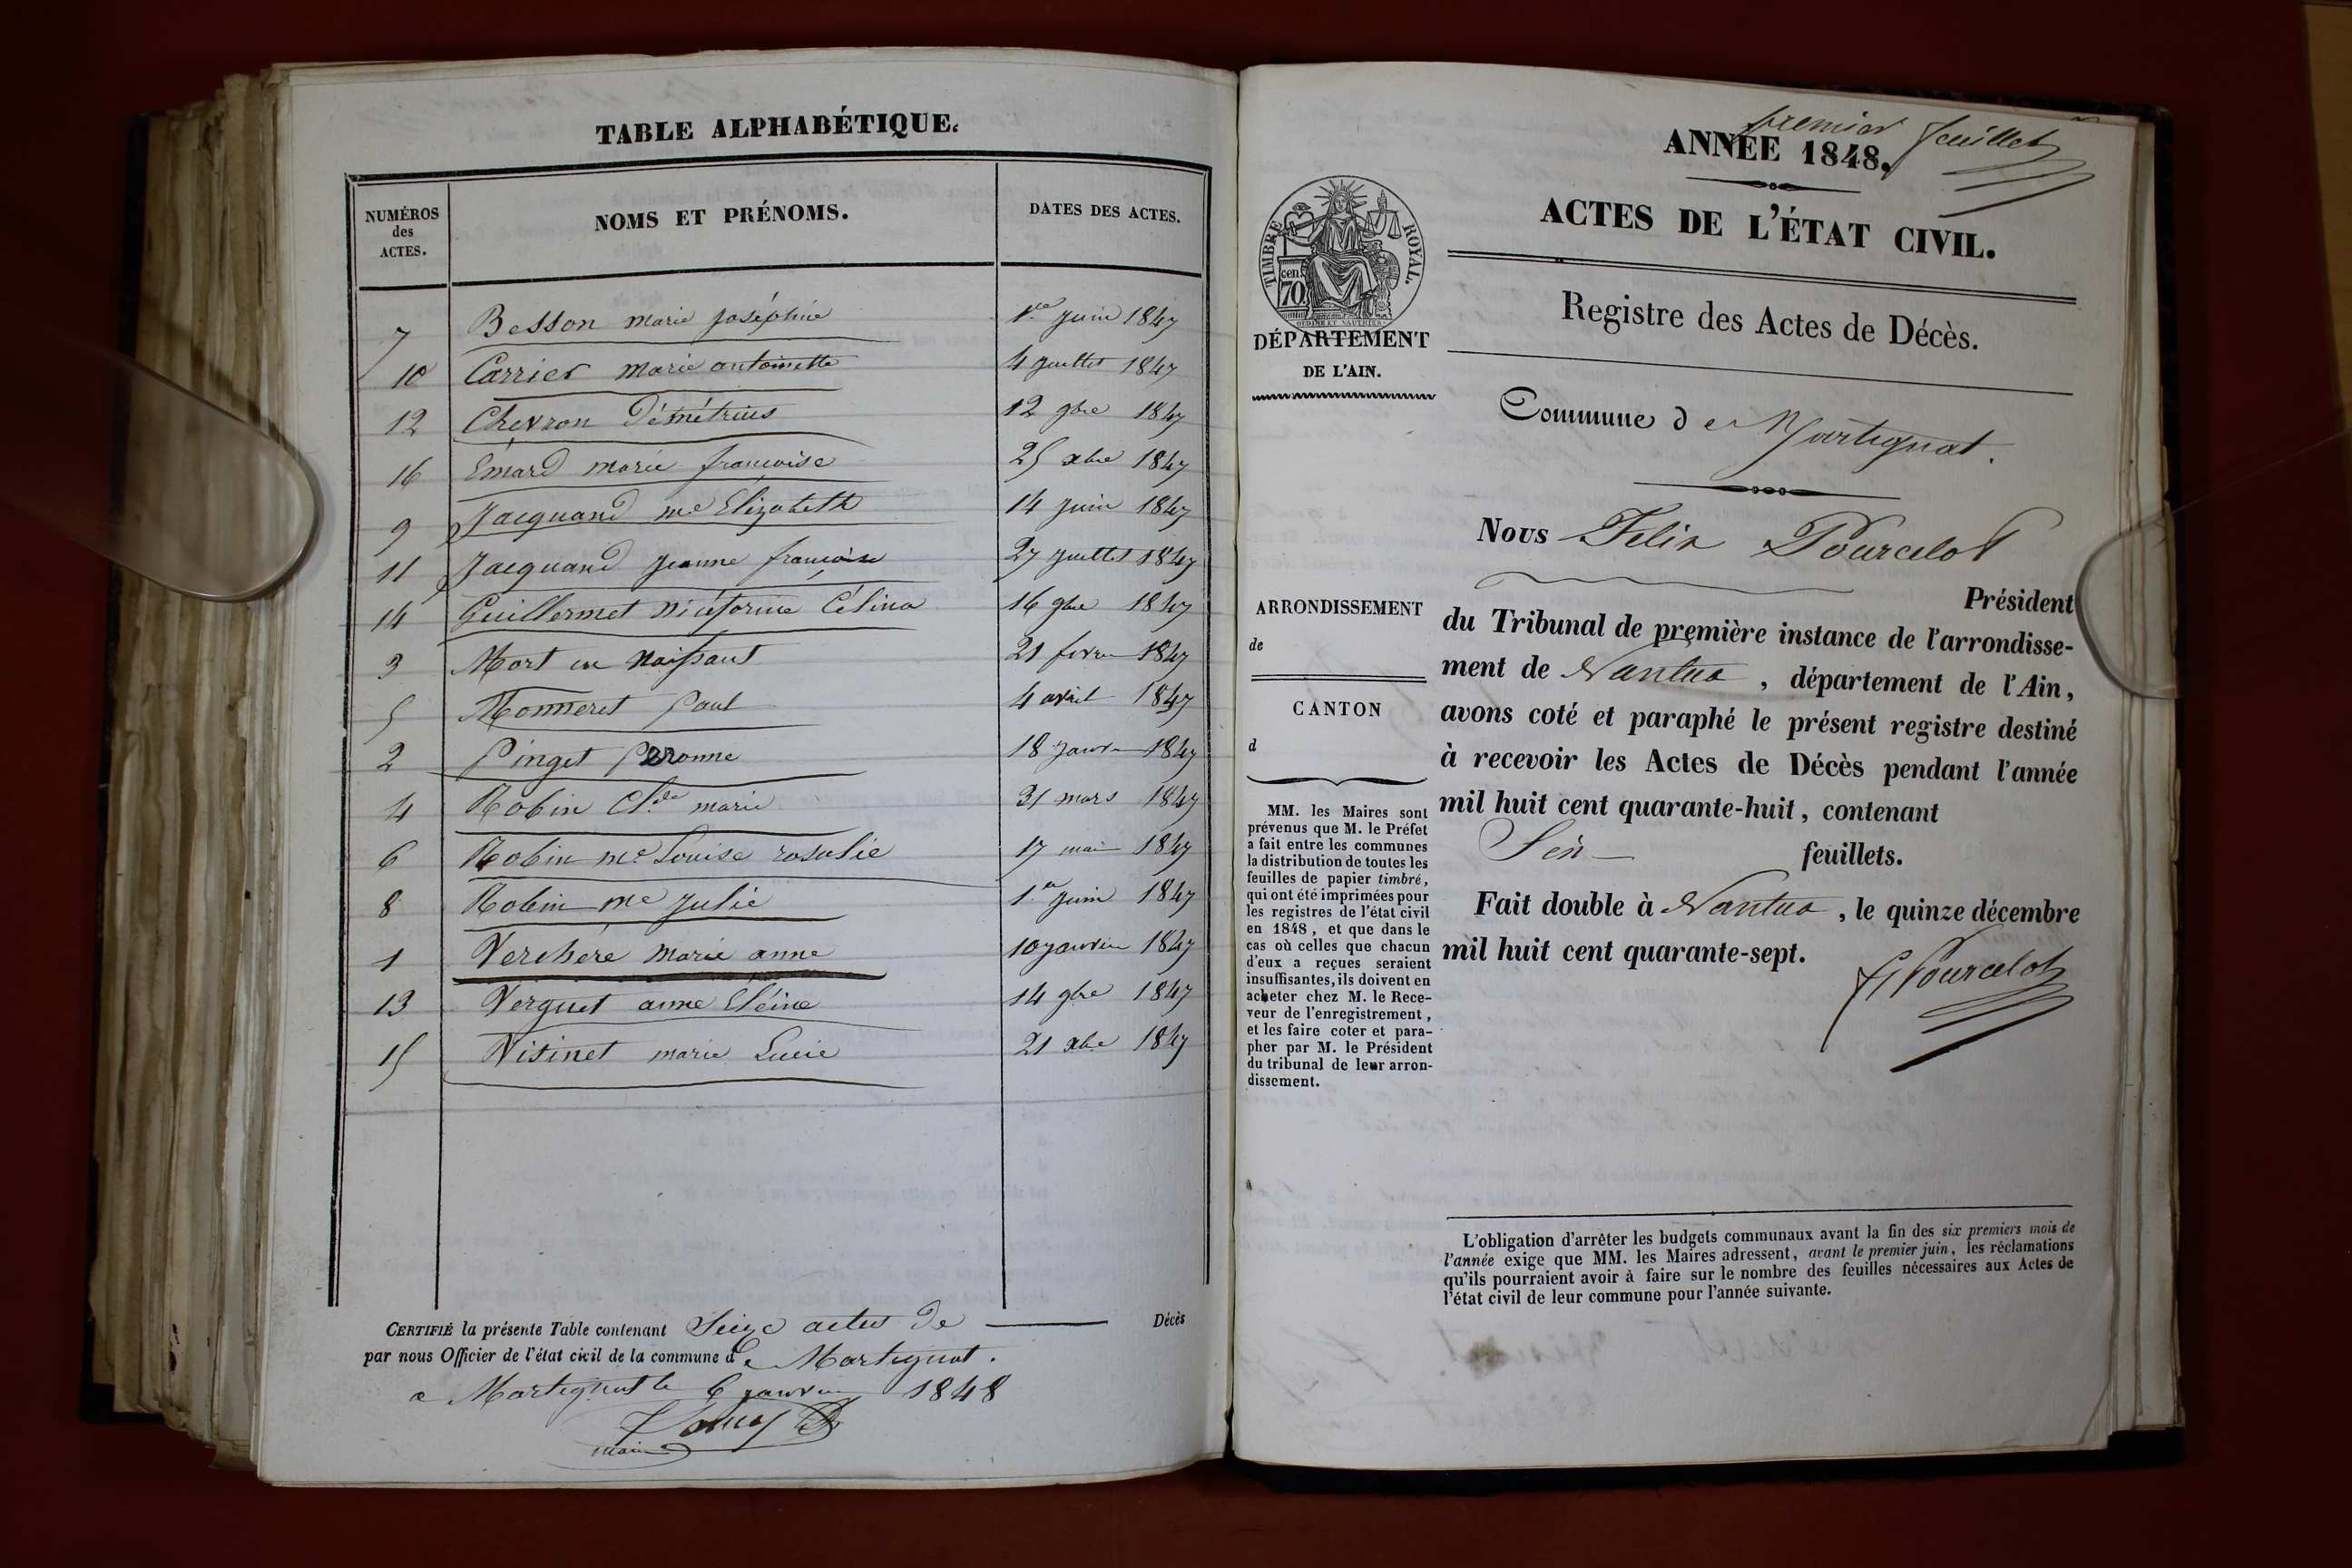 TABLE ALPHABÉTIQUE.
NUMÉROS des ACTES. NOMS ET PRÉNOMS. DATES DES ACTES.
7 Besson marie joséphine 1er juin 1847
10 Carrier marie antoinette 4 juillet 1847
12 Chevron Démétrius 12 9bre 1847
16 Émard marie françoise 25 xbre 1847
9 Jacquand me Elizabeth 14 juin 1847
11 Jacquand jeanne françoise 27 juillet 1847
14 Guillermet Célina 16 9bre 1847
3 Mort en Naissant 21 fevrr 1847
5 Monneret Paul 4 avril 1847
2 Pinget Peronne 18 janvr 1847
4 Robin Clde marie 31 mars 1847
6 Robin me Louise rosalie 17 mai 1847
8 Robin me Julie 1er juin 1847
1 Verchère marie anne 10 janvier 1847
13 Verguet anne 14 9bre 1847
15 Visinet marie Lucie 21 xbre 1847
CERTIFIÉ la présente Table contenant Seize actes de Décès
par nous Officier de l'état civil de la commune de Martignat.
a Martignat le 6 janvier 1848
maire
premier feuillet
ANNÉE 1848.
ACTES DE L'ÉTAT CIVIL.
Registre des Actes de Décès.
Commune de Martignat.
TIMBRE ROYAL.
70 cen.
DÉPARTEMENT
DE L'AIN.
ARRONDISSEMENT
de
CANTON
d
MM. les Maires sont
prévenus que M. le Préfet
a fait entre les communes
la distribution de toutes les
feuilles de papier timbré,
qui ont été imprimées pour
les registres de l'état civil
en 1848, et que dans le
cas où celles que chacun
d'eux a reçues seraient
insuffisantes, ils doivent en
acheter chez M. le Rece-
veur de l'enregistrement,
et les faire coter et para-
pher par M. le Président
du tribunal de leur arron-
dissement.
Nous Felix Pourcelot
Président
du Tribunal de première instance de l'arrondisse-
ment de Nantua, département de l'Ain,
avons coté et paraphé le présent registre destiné
à recevoir les Actes de Décès pendant l'année
mil huit cent quarante-huit, contenant
feuillets.
Fait double à Nantua, le quinze décembre
mil huit cent quarante-sept.
F Pourcelot
L'obligation d'arrêter les budgets communaux avant la fin des six premiers mois de
l'année exige que MM. les Maires adressent, avant le premier juin, les réclamations
qu'ils pourraient avoir à faire sur le nombre des feuilles nécessaires aux Actes de
l'état civil de leur commune pour l'année suivante.